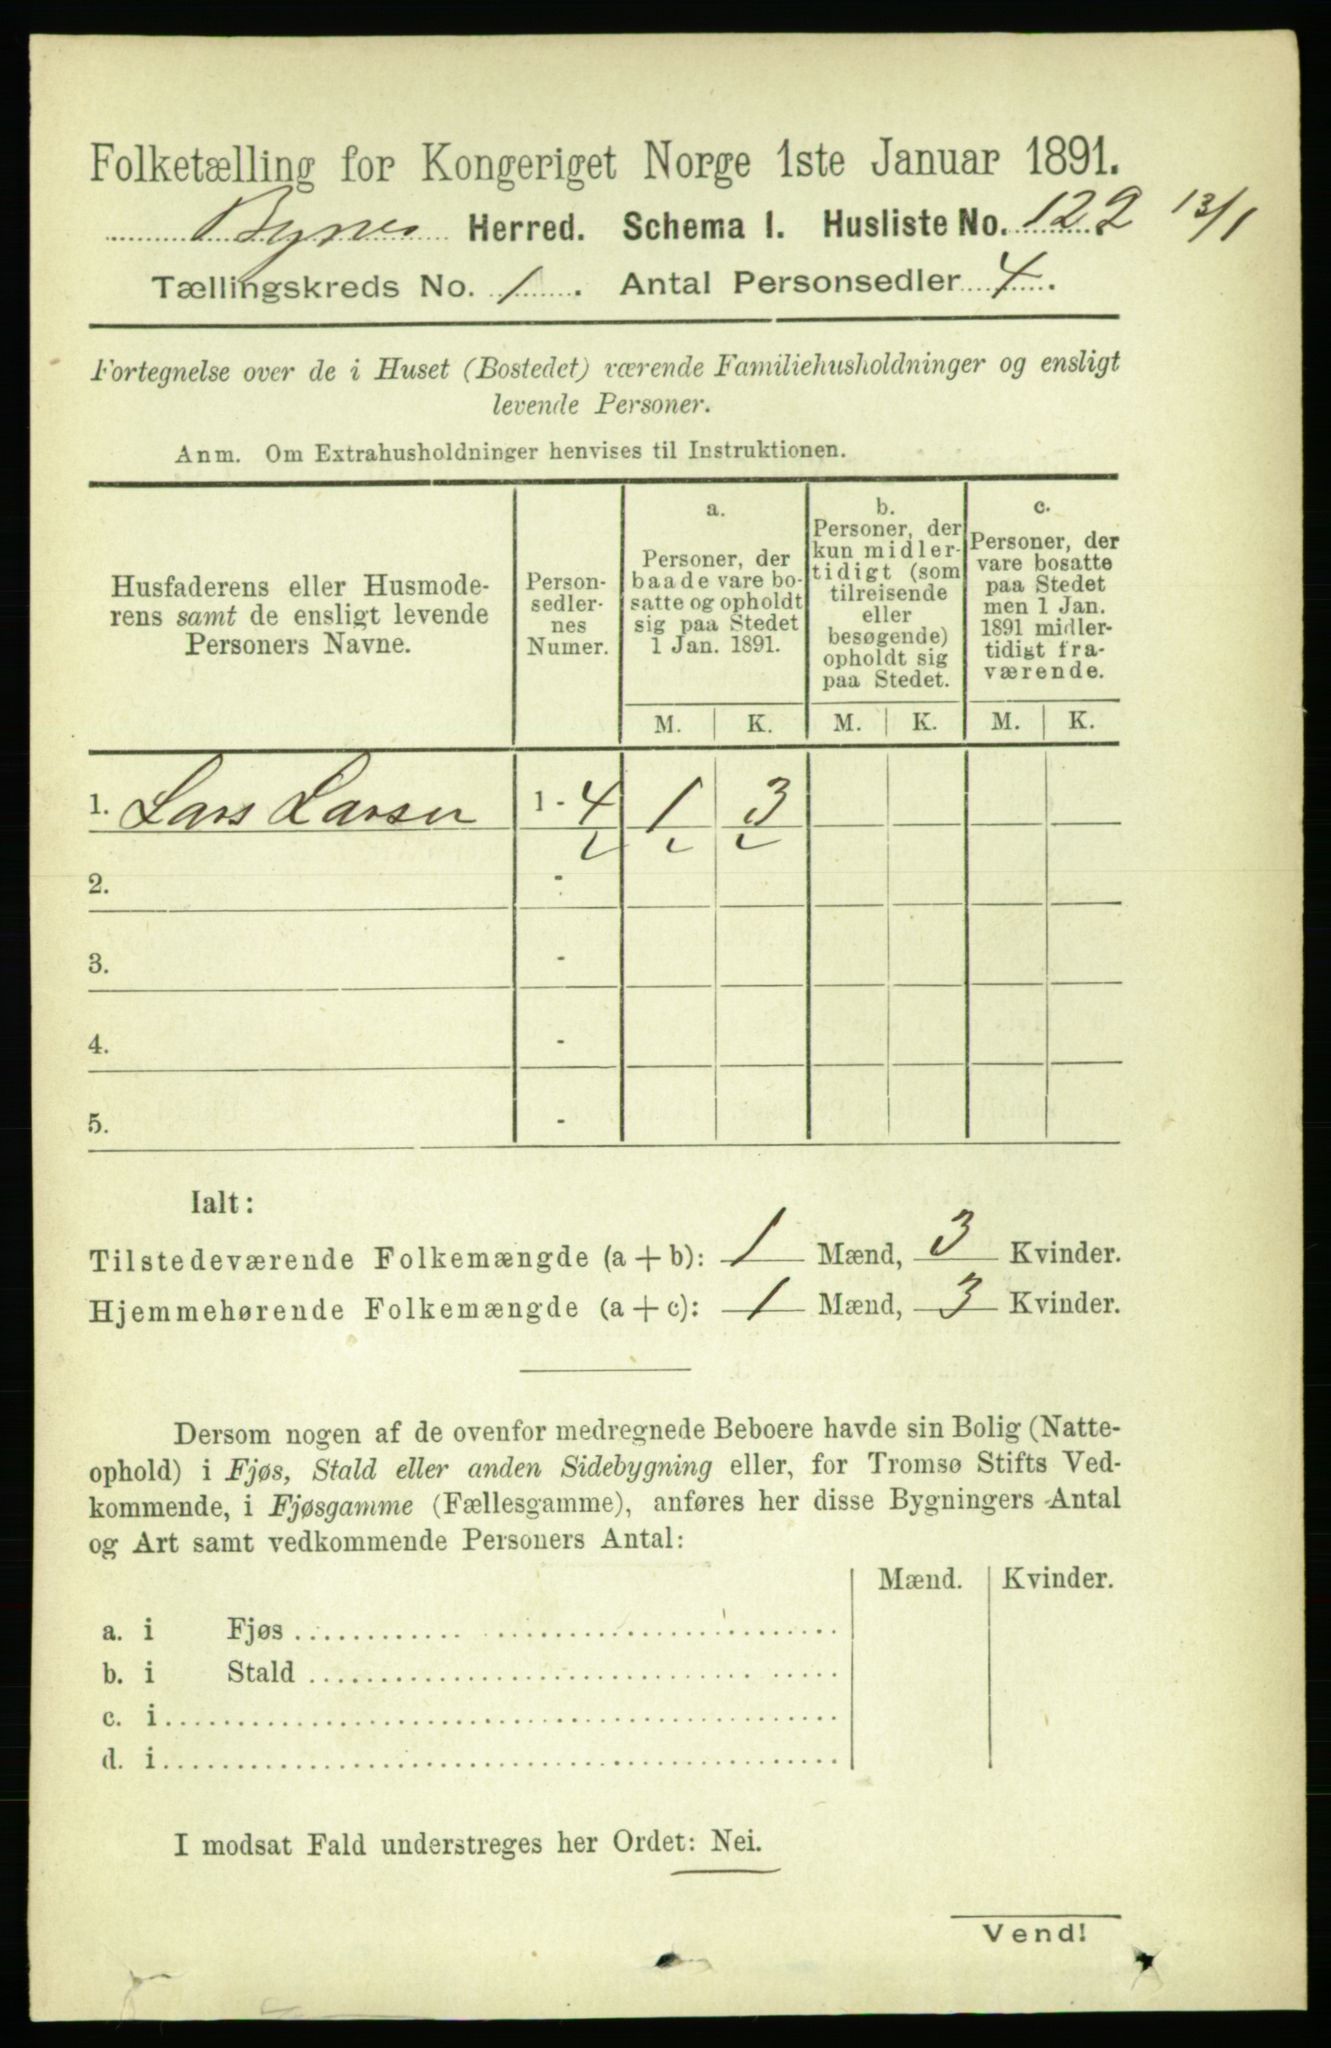 Folketælling for Kongeriget Norge 1ste Januar 1891.
Bynes Herred. Schema I. Husliste No. 122 13/1
Tællingskreds No. 1. Antal Personsedler 4.
Fortegnelse over de i Huset (Bostedet) værende Familiehusholdninger og ensligt
levende Personer.
Anm. Om Extrahusholdninger henvises til Instruktionen.
Husfaderens eller Husmode-
rens samt de ensligt levende
Personers Navne.
Person-
sedler-
nes
Numer.
a.
Personer, der
baade vare bo-
satte og opholdt
sig paa Stedet
1 Jan. 1891.
b.
Personer, der
kun midler-
tidigt (som
tilreisende
eller
besøgende)
opholdt sig
paa Stedet.
c.
Personer, der
vare bosatte
paa Stedet
men 1 Jan.
1891 midler-
tidigt fra-
værende.
M. K. M. K. M. K.
1. Lars Larsen 1 - 4 1 3
2. -
3. -
4. -
5. -
Ialt:
Tilstedeværende Folkemængde (a + b): 1 Mænd, 3 Kvinder.
Hjemmehørende Folkemængde (a + c): 1 Mænd, 3 Kvinder.
Dersom nogen af de ovenfor medregnede Beboere havde sin Bolig (Natte-
ophold) i Fjøs, Stald eller anden Sidebygning eller, for Tromsø Stifts Ved-
kommende, i Fjøsgamme (Fællesgamme), anføres her disse Bygningers Antal
og Art samt vedkommende Personers Antal:
Mænd. Kvinder.
a. i Fjøs
b. i Stald
c. i
d. i
I modsat Fald understreges her Ordet: Nei.
Vend!